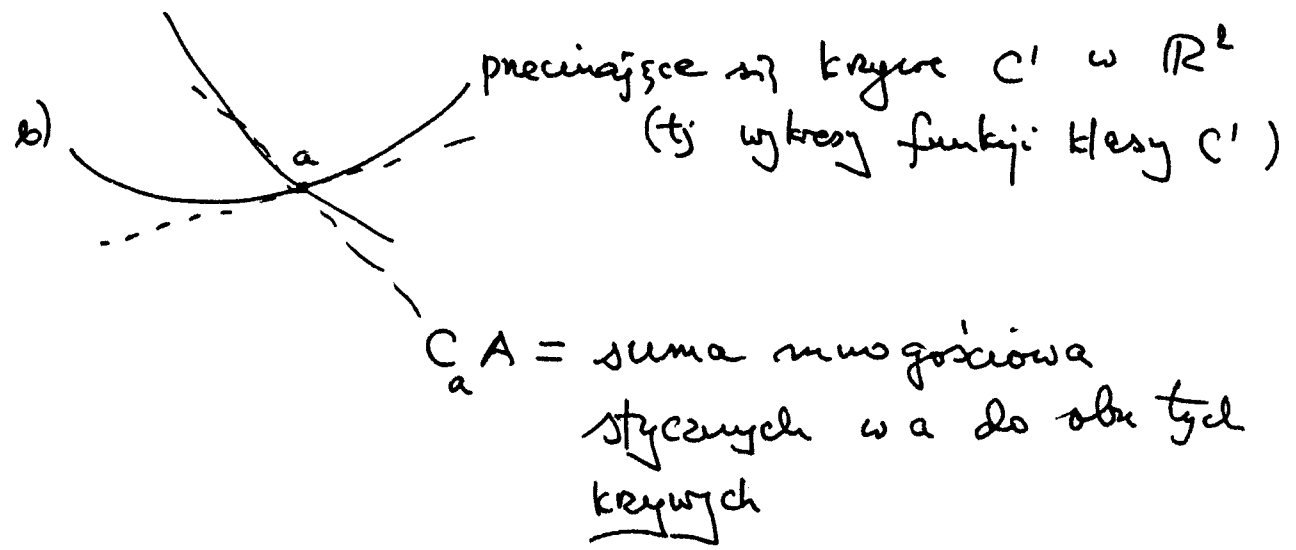 b)
a
przecinające się krzywe C¹ w ℝ²
(tj wykresy funkcji klasy C¹)
CₐA = suma mnogościowa
stycznych w a do obu tych
krzywych